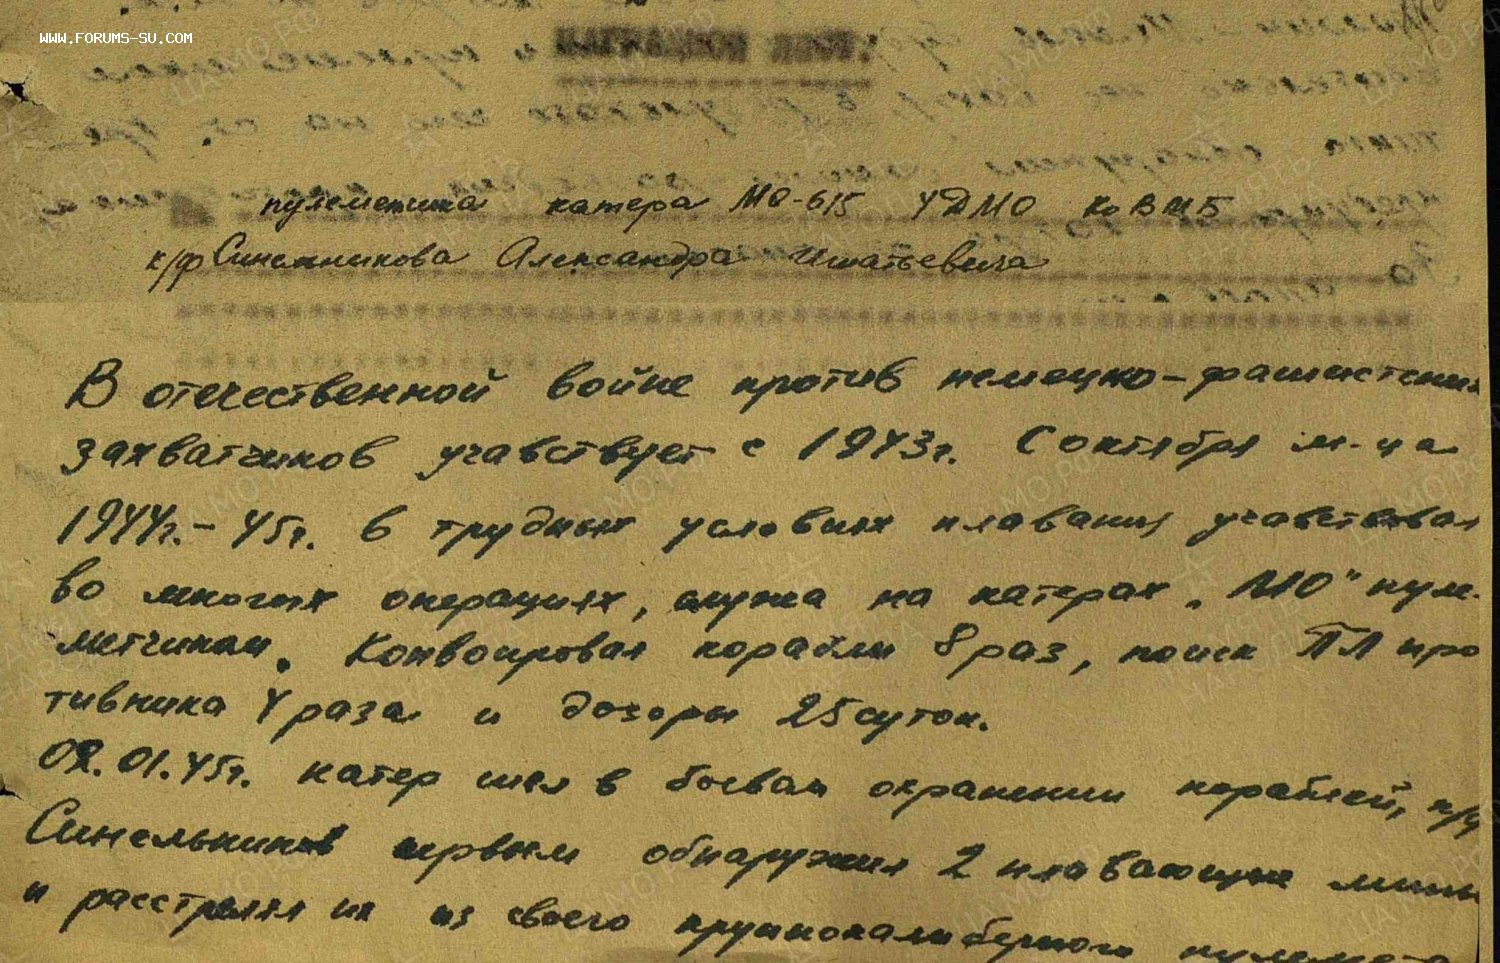 WWW.FORUMS-SU.COM
НАГРАДНОЙ ЛИСТ:
пулеметчика катера МО-615 УДМО КоВМБ
к/ф Синельникова Александра Игнатьевича
В отечественной войне против немецко-фашистских
захватчиков учавствует с 1943г. С октября м-ца
1944г.-45г. в трудных условиях плавания учавствовал
во многих операциях, служа на катерах "МО" пуле-
метчиком. Конвоировал корабли 8 раз, поиск ПЛ про
тивника 4 раза и дозоры 25 суток.
02.01.45г. катер шел в боевом охранении кораблей, к/ф
Синельников первым обнаружил 2 плавающие мины
и расстрелял их из своего крупнокалиберного пулемета